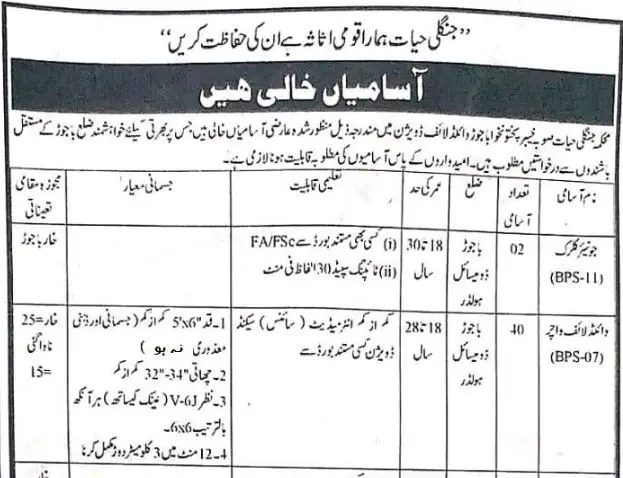 ”جنگلی حیات ہمارا قومی اثاثہ ہے ان کی حفاظت کریں“
آسامیاں خالی ھیں
محکمہ جنگلی حیات صوبہ خیبر پختونخوا باجوڑ وائلڈ لائف ڈویژن میں مندرجہ ذیل منظور شدہ عارضی آسامیاں خالی ہیں جس پر بھرتی کیلئے خواہشمند ضلع باجوڑ کے مستقل
باشندوں سے درخواستیں مطلوب ہیں۔ امیدواروں کے پاس آسامیوں کی مطلوبہ قابلیت ہونا لازمی ہے۔
نام آسامی
تعداد
آسامی
ضلع
عمر کی حد
تعلیمی قابلیت
جسمانی معیار
مجوزہ مقامی
تعیناتی
جونیئر کلرک
(BPS-11)
02
باجوڑ
ڈومیسائل
ہولڈر
18 تا 30
سال
(i) کسی بھی مستند بورڈ سے FA/FSc
(ii) ٹائپنگ سپیڈ 30 الفاظ فی منٹ
خار باجوڑ
وائلڈ لائف واچر
(BPS-07)
40
باجوڑ
ڈومیسائل
ہولڈر
18 تا 28
سال
کم از کم انٹرمیڈیٹ (سائنس) سیکنڈ
ڈویژن کسی مستند بورڈ سے
1۔ قد 5'x6" کم از کم (جسمانی اور ذہنی
معذوری نہ ہو)
2۔ چھاتی "34-"32 کم از کم
3۔ نظر V-6J (عینک کیساتھ) ہر آنکھ
بالترتیب 6x6۔
4۔ 12 منٹ میں 3 کلومیٹر دوڑ مکمل کرنا
خار=25
ناواگئی
=15
خار